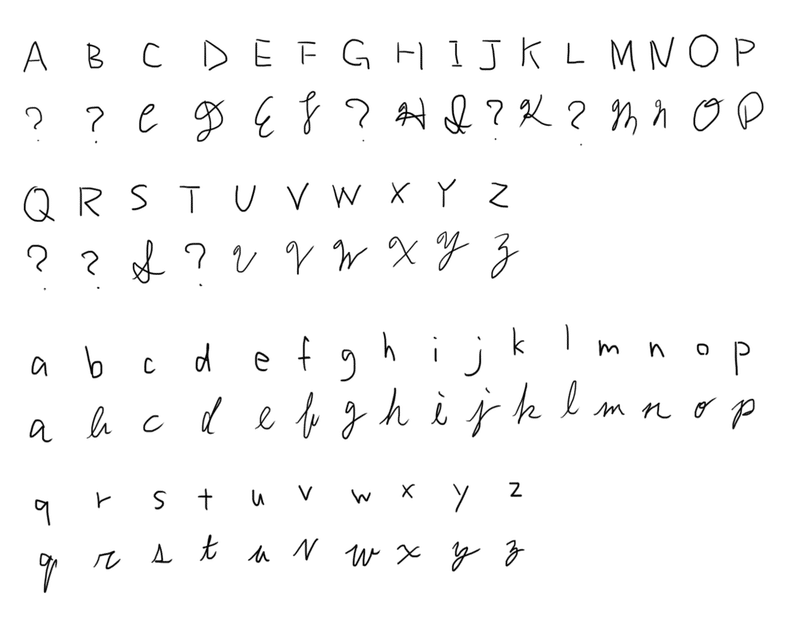 A B C D E F G H I J K L M N O P
? ? C D E F ? H I ? K ? M N O P
Q R S T U V W X Y Z
? ? S ? U V W X Y Z
a b c d e f g h i j k l m n o p
a b c d e f g h i j k l m n o p
q r s t u v w x y z
q r s t u v w x y z